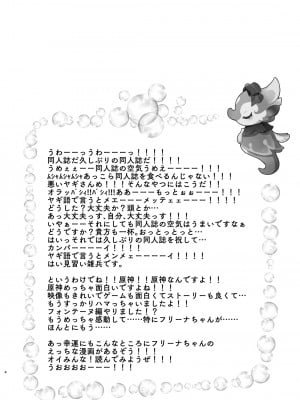 うわーーーっうわーーーっ!!
同人誌だ久しぶりの同人誌だ!!!!
うめぇぇーー同人誌の空気うめえーーーー!!!!
ﾑｼｬﾑｼｬﾑｼｬあっこら同人誌を食べるんじゃない!!!!
悪いヤギさんめ!!そんなやつにはこうだ!!
オラッﾊﾞｼｨ!ﾊﾞｼｨ!!ああーーーもっとぉぉーーー!!
ヤギ語で言うとメエーーーメッテェェーーー!!!
どうした?大丈夫か?頭とか…
あっ大丈夫っす、自分、大丈夫っす!
いやぁーーそれにしても同人誌の空気はうまいですなぁ
どうですか?貴方も一杯。おっとっとっと…
はいっそれでは久しぶりの同人誌を祝して…
カンパーーーーイ!!!!!
ヤギ語で言うとメンメェーーーイ!!!!!
はい見習い雑兵です。
というわけでね!!原神!!原神なんですよ!!
原神めっちゃ面白いですよね!!!
映像もきれいでゲームも面白くてストーリーも良くて…
もうすっかりハマっちゃいましたよ!!
フォンテーヌ編やりました!?
もうめっちゃ感動して……特にフリーナちゃんが……
ほんとにもう……
あっ幸運にもこんなところにフリーナちゃんの
えっちな漫画があるぞう!!!
オイみんな!読んでみようぜ!!!
うおおおおーーー!!!